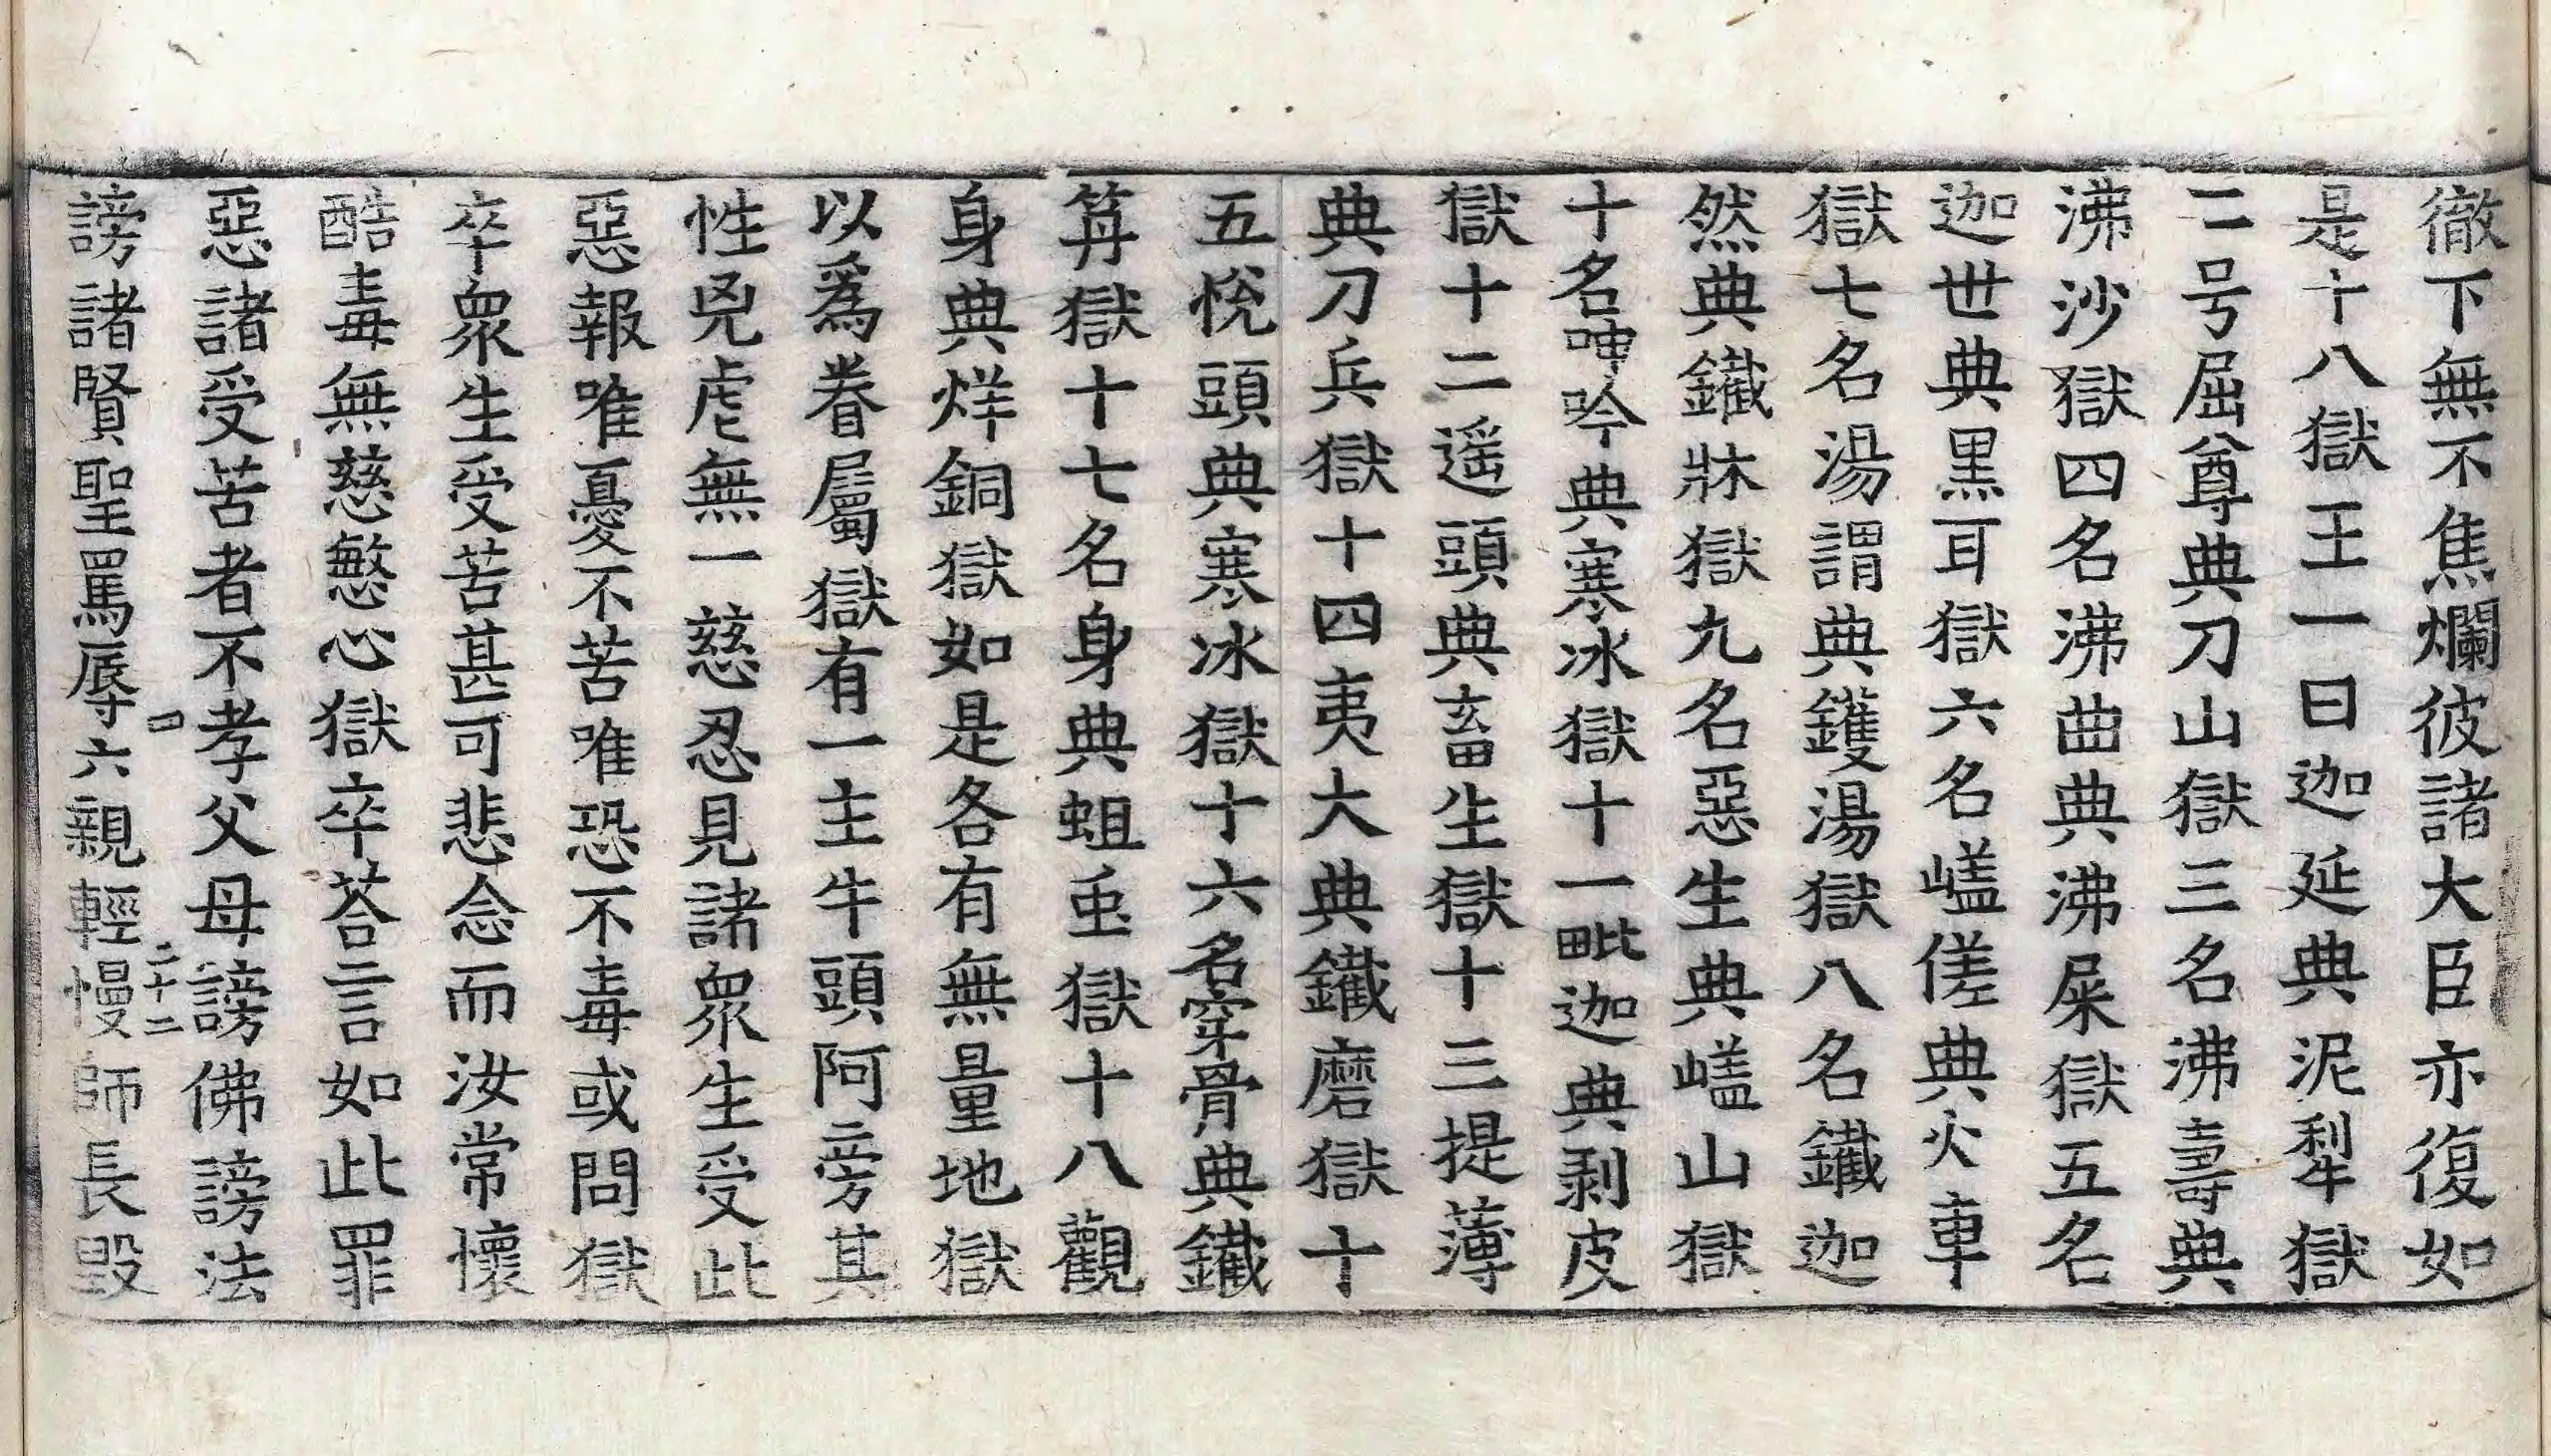 徹下無不焦爛彼諸大臣亦復如
是十八獄王一曰迦延典泥犁獄
二号屈尊典刀山獄三名沸壽典
沸沙獄四名沸曲典沸屎獄五名
迦世典黑耳獄六名𡾋傞典火車
獄七名湯謂典鑊湯獄八名鐵迦
然典鐵牀獄九名惡生典𡾋山獄
十名呻吟典寒冰獄十一毗迦典剥皮
獄十二遥頭典畜生獄十三提薄
典刀兵獄十四夷大典鐵磨獄十
五悅頭典寒冰獄十六名穿骨典鐵
筭獄十七名身典蛆䖝獄十八觀
身典烊銅獄如是各有無量地獄
以爲眷屬獄有一主牛頭阿旁其
性兇虐無一慈忍見諸衆生受此
惡報唯憂不苦唯恐不毒或問獄
卒衆生受苦甚可悲念而汝常懷
酷毒無慈愍心獄卒荅言如此罪
惡諸受苦者不孝父母謗佛謗法
四 二十二
謗諸賢聖罵辱六親輕慢師長毀